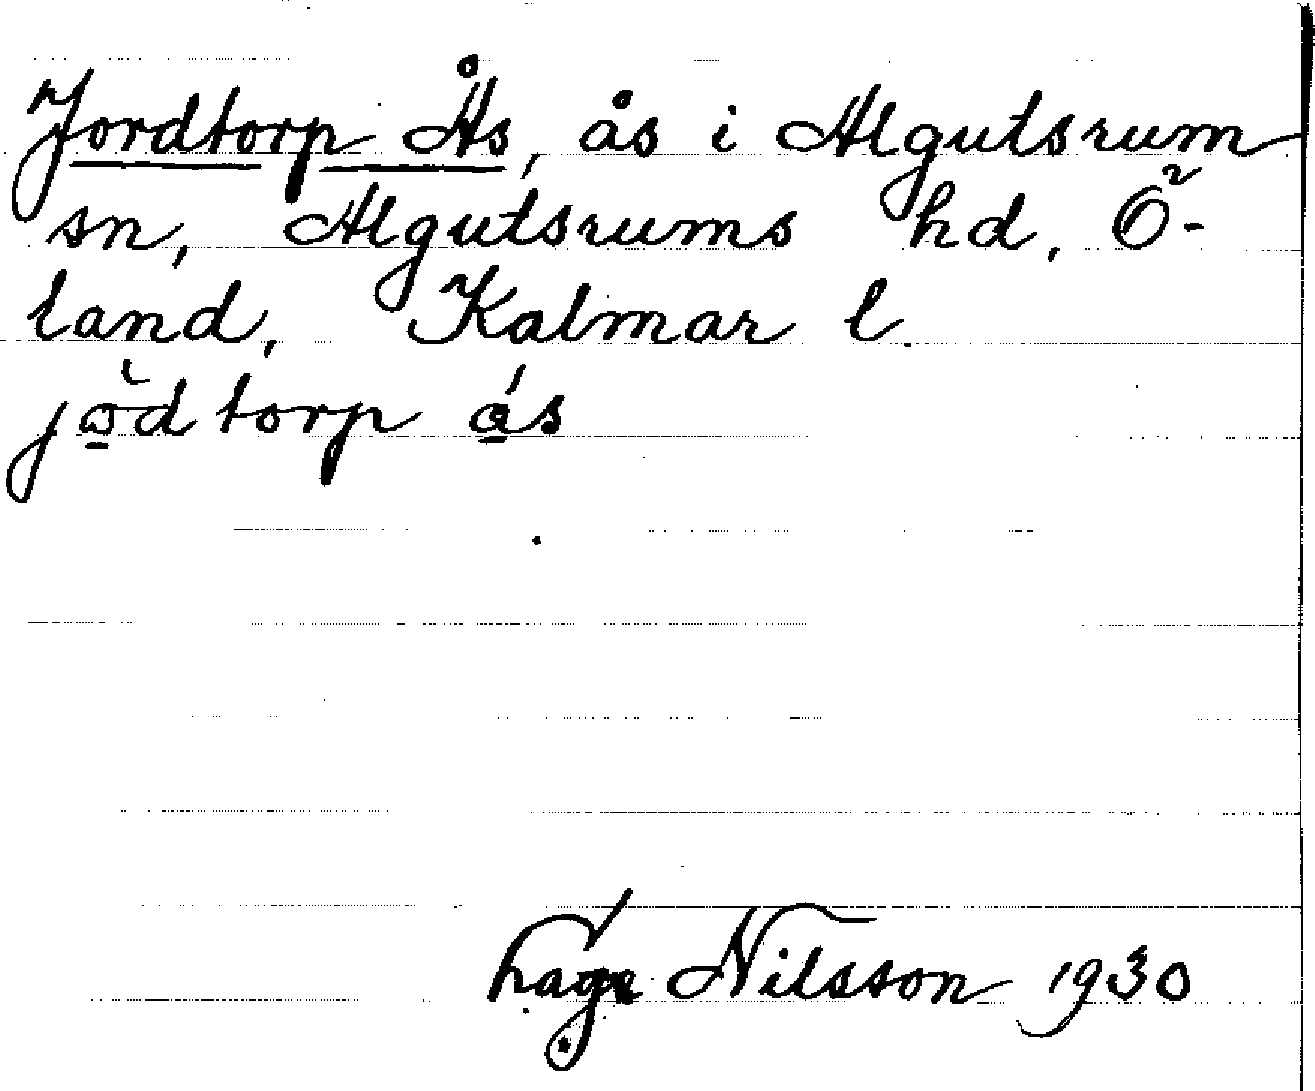 Jordtorp Ås, ås i Algutsrum
sn, Algutsrums hd, Ö-
land, Kalmar l.
jödtorp ás
Nilsson 1930